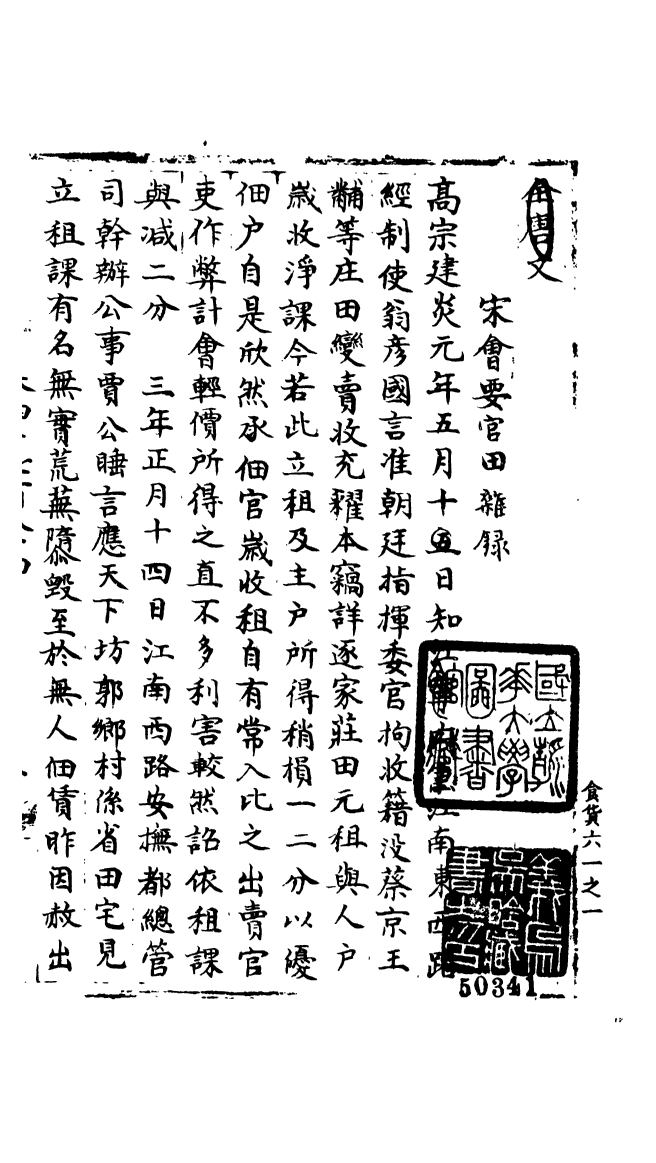 全唐文
宋會要官田雜録
高宗建炎元年五月十五日知江寧府兼江南東西路
經制使翁彥國言准朝廷指揮委官拘收籍没蔡京王
黼等庄田變賣收充糴本竊詳逐家莊田元租與人户
嵗收淨課今若此立租及主户所得稍損一二分以優
佃户自是欣然承佃官嵗收租自有常入比之出賣官
吏作弊計會輕價所得之直不多利害較然詔依租課
與减二分　三年正月十四日江南西路安撫都總管
司幹辦公事賈公曄言應天下坊郭鄉村係省田宅見
立租課有名無實荒蕪隳毀至於無人佃賃昨因赦出
食貨六一之一
國立北平圖書館
50341